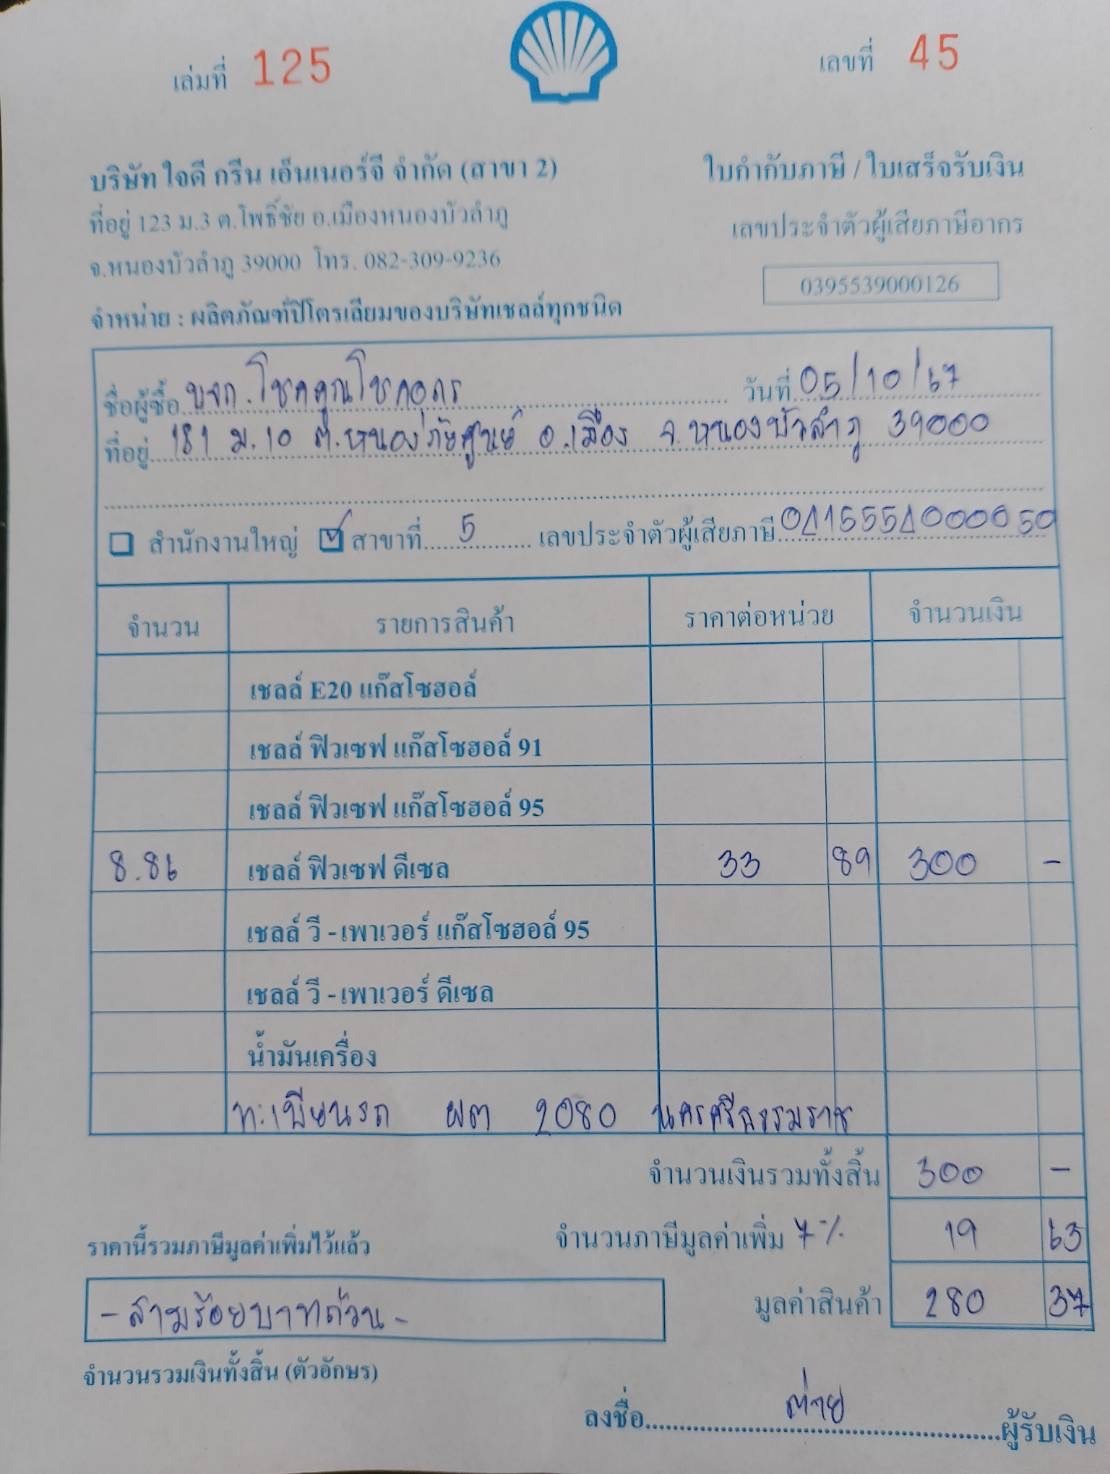 เล่มที่ 125
เลขที่ 45
บริษัท ใจดี กรีน เอ็นเนอร์จี จำกัด (สาขา 2)
ใบกำกับภาษี / ใบเสร็จรับเงิน
ที่อยู่ 123 ม.3 ต.โพธิ์ชัย อ.เมืองหนองบัวลำภู
เลขประจำตัวผู้เสียภาษีอากร
จ.หนองบัวลำภู 39000 โทร. 082-309-9236
0395539000126
จำหน่าย : ผลิตภัณฑ์ปิโตรเลียมของบริษัทเชลล์ทุกชนิด
ชื่อผู้ซื้อ บจก.โชคคูณโชคอุดร วันที่ 05/10/67
ที่อยู่ 181 ม.10 ต.หนองภัยศูนย์ อ.เมือง จ.หนองบัวลำภู 39000
สำนักงานใหญ่ สาขาที่ 5 เลขประจำตัวผู้เสียภาษี
จำนวน รายการสินค้า ราคาต่อหน่วย จำนวนเงิน
เชลล์ E20 แก๊สโซฮอล์
เชลล์ ฟิวเซฟ แก๊สโซฮอล์ 91
เชลล์ ฟิวเซฟ แก๊สโซฮอล์ 95
8.86 เชลล์ ฟิวเซฟ ดีเซล 33 89 300 -
เชลล์ วี - เพาเวอร์ แก๊สโซฮอล์ 95
เชลล์ วี - เพาเวอร์ ดีเซล
น้ำมันเครื่อง
ทะเบียนรถ ผต 2080 นครศรีธรรมราช
จำนวนเงินรวมทั้งสิ้น 300 -
ราคานี้รวมภาษีมูลค่าเพิ่มไว้แล้ว
จำนวนภาษีมูลค่าเพิ่ม 7% 19 63
- สามร้อยบาทถ้วน -
มูลค่าสินค้า 280 37
จำนวนรวมเงินทั้งสิ้น (ตัวอักษร)
ลงชื่อ ต่าย ผู้รับเงิน